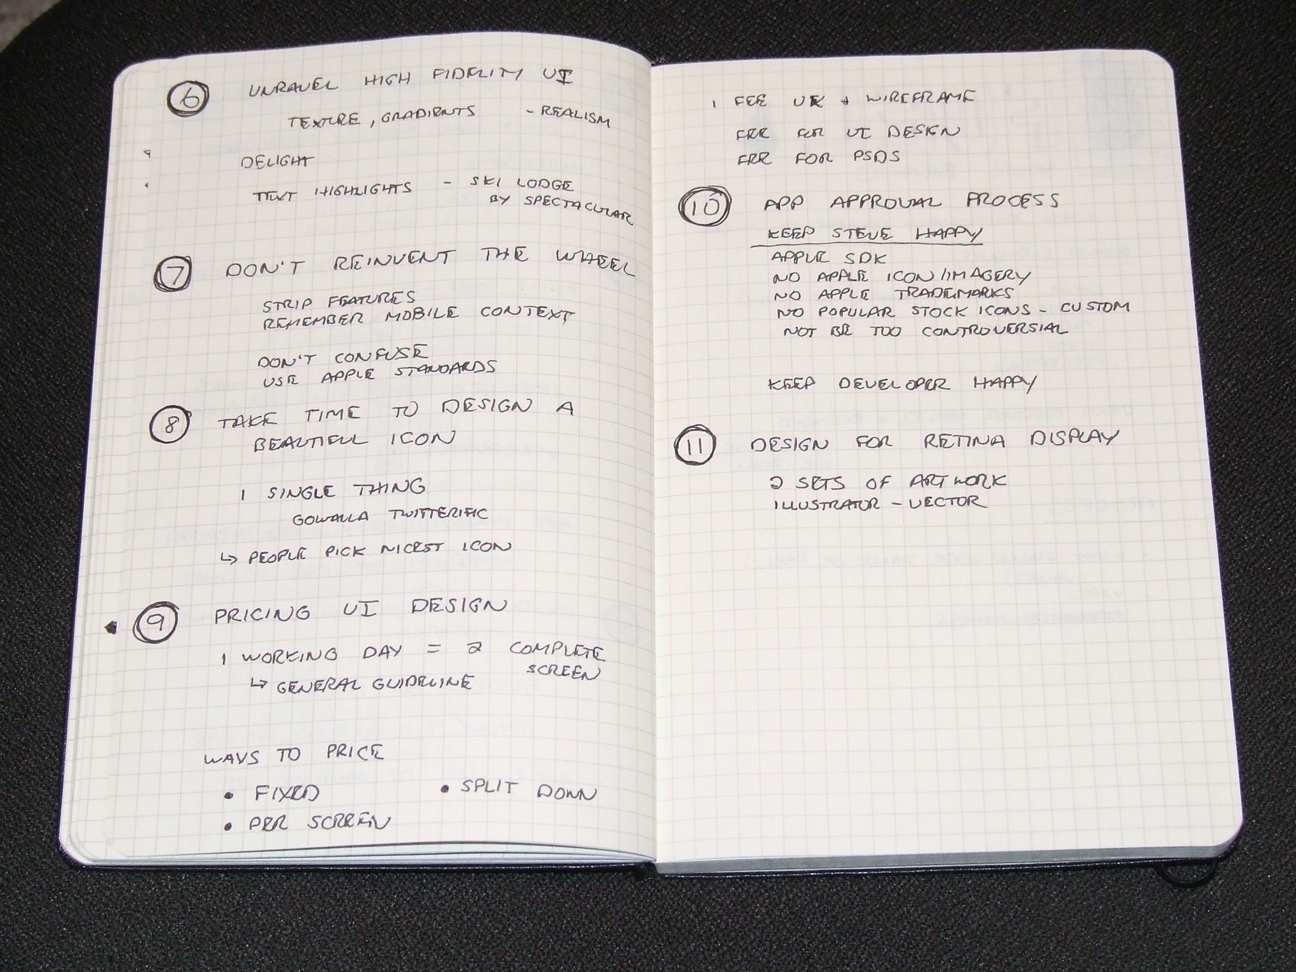 6 UNRAVEL HIGH FIDELITY UI
TEXTURE, GRADIENTS - REALISM
DELIGHT
TEXT HIGHLIGHTS - SKI LODGE
BY SPECTACULAR
7 DON'T REINVENT THE WHEEL
STRIP FEATURES
REMEMBER MOBILE CONTEXT
DON'T CONFUSE
USE APPLE STANDARDS
8 TAKE TIME TO DESIGN A
BEAUTIFUL ICON
1 SINGLE THING
GOWALLA TWITTERIFIC
↳ PEOPLE PICK NICEST ICON
9 PRICING UI DESIGN
1 WORKING DAY = 2 COMPLETE
SCREEN
↳ GENERAL GUIDELINE
WAYS TO PRICE
• FIXED • SPLIT DOWN
• PER SCREEN
1 FEE UX + WIREFRAME
FEE FOR UI DESIGN
FEE FOR PSDS
10 APP APPROVAL PROCESS
KEEP STEVE HAPPY
APPLE SDK
NO APPLE ICON/IMAGERY
NO APPLE TRADEMARKS
NO POPULAR STOCK ICONS - CUSTOM
NOT BE TOO CONTROVERSIAL
KEEP DEVELOPER HAPPY
11 DESIGN FOR RETINA DISPLAY
2 SETS OF ARTWORK
ILLUSTRATOR - VECTOR